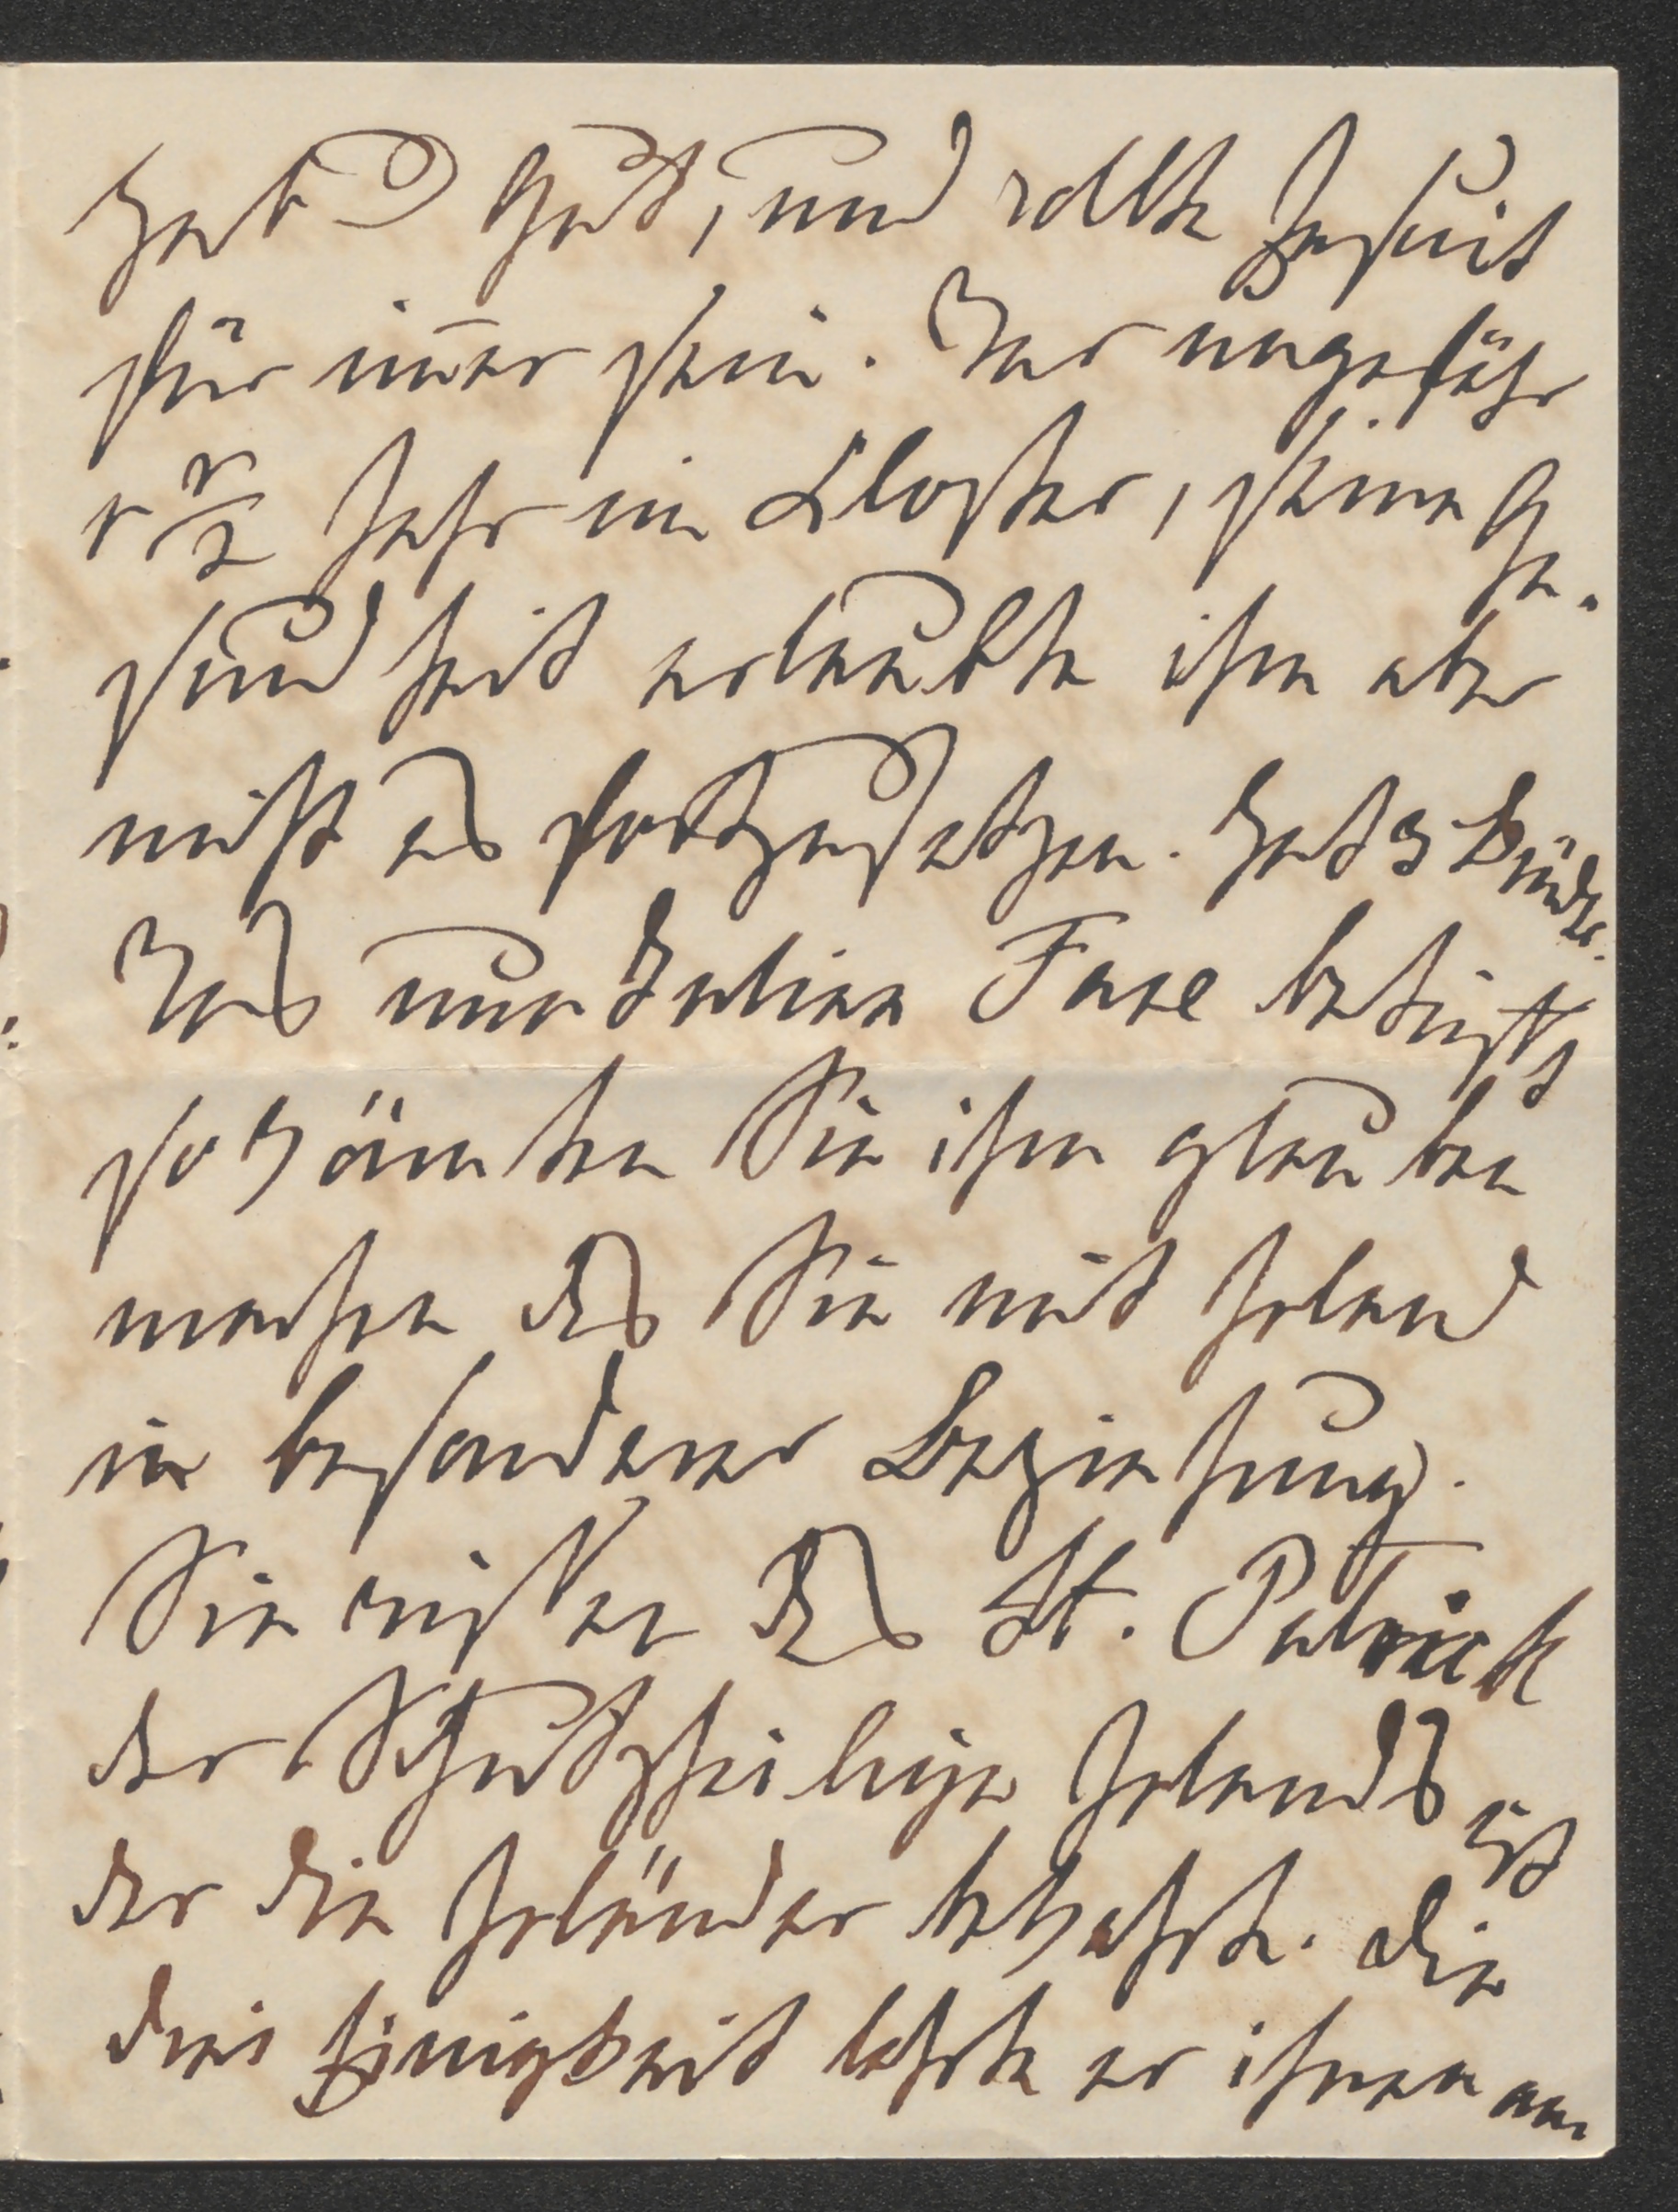 hab Gott, und wollte Jesuit
für im̄er sein. War ungefähr
1 1/2 Jahr im Kloster, seine Ge-
sundheit erlaubte ihm aber
nicht es fortzusetzen. Hat 3 Brüder.
Was nun Julian Fane betrifft
so könnten Sie ihm glauben
machen daß Sie mit Irland
in besonderer Beziehung.
Sie wissen daß St. Patrick
der Schutzheilige Irlands ist
der die Irländer bekehrte. Die
drei Einigkeit lehrte er ihnen am